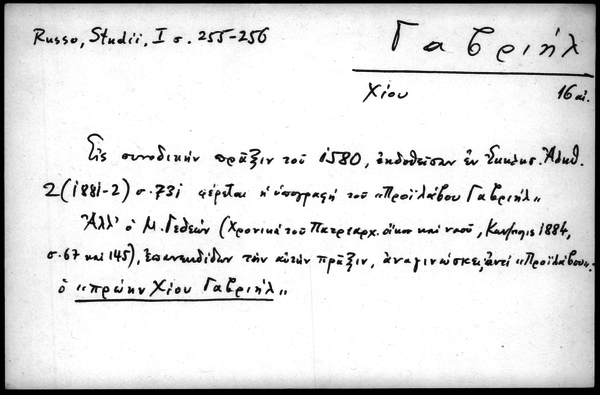 Russo, Studii, I σ. 255-256
Γαβριήλ
Χίου 16 αἰ.
Εἰς συνοδικὴν πρᾶξιν τοῦ 1580, ἐκδοθεῖσαν ἐν Ἐκκλησ. Ἀληθ.
2 (1881-2) σ. 731 φέρεται ἡ ὑπογραφὴ τοῦ "Προϊλάβου Γαβριήλ"
Ἀλλ' ὁ Μ. Γεδεών (Χρονικὰ τοῦ Πατριαρχ. οἴκου καὶ ναοῦ, Κων/πολις 1884,
σ. 67 καὶ 145), ἐπανεκδίδων τὴν αὐτὴν πρᾶξιν, ἀναγινώσκει, ἀντὶ "Προϊλάβου"-
ὁ "πρώην Χίου Γαβριήλ"